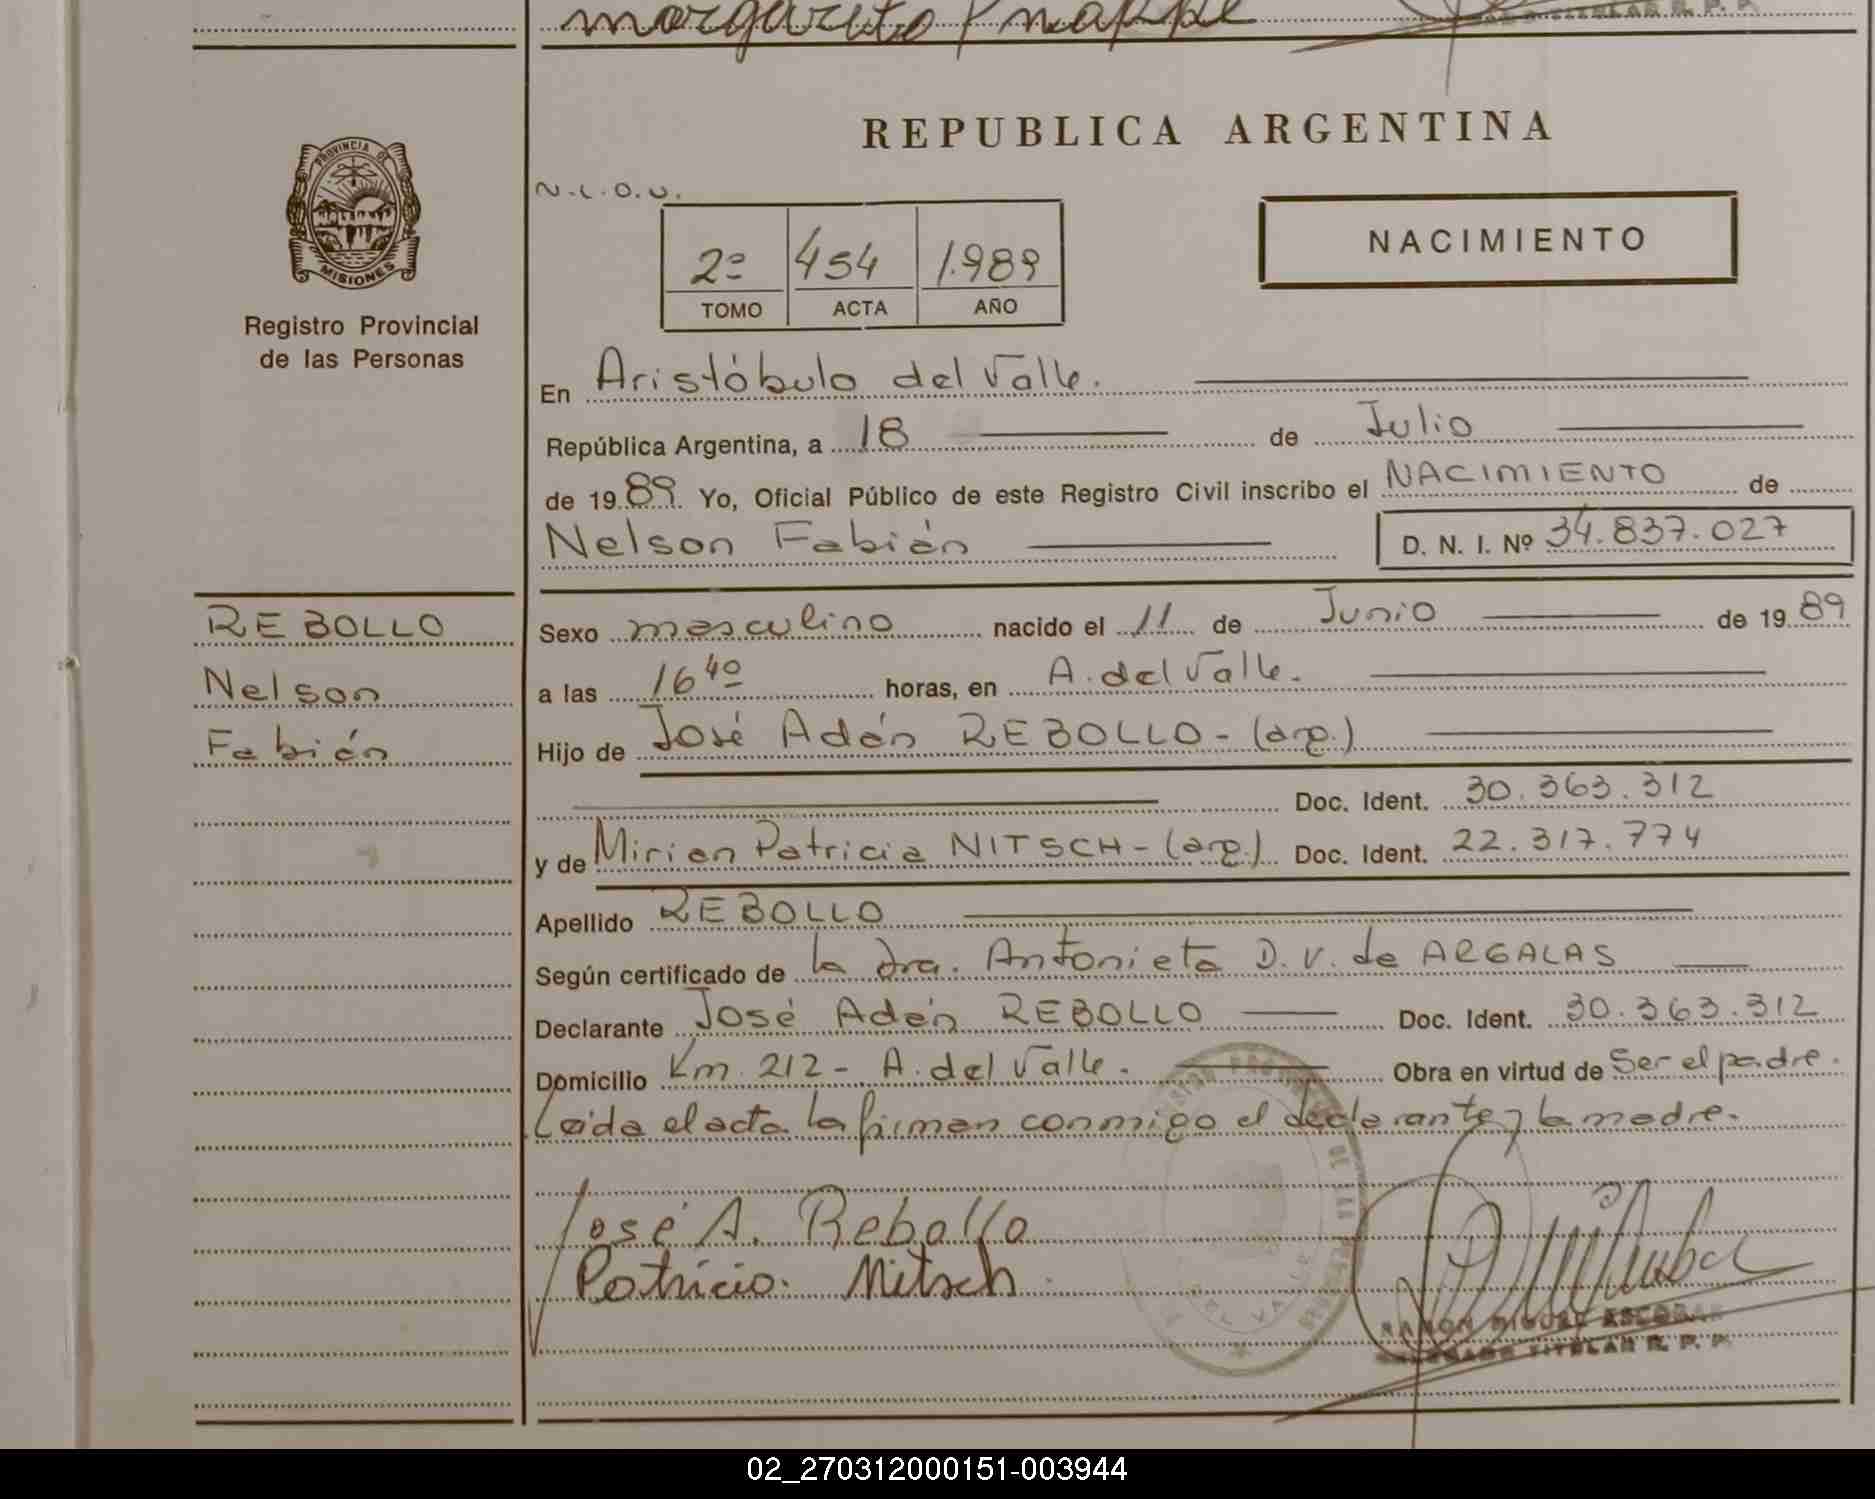 Margarita Knappe
PROVINCIA DE
MISIONES
Registro Provincial
de las Personas
REPUBLICA ARGENTINA
N.L.O.V.
NACIMIENTO
2º 454 1.989
TOMO ACTA AÑO
En Aristóbulo del Valle.
República Argentina, a 18 de Julio
de 19 89 Yo, Oficial Público de este Registro Civil inscribo el NACIMIENTO de
Nelson Fabián D. N. I. Nº 34.837.027
REBOLLO
Nelson
Fabián
Sexo masculino nacido el 11 de Junio de 19 89
a las 16 40 horas, en A. del Valle.
Hijo de José Adán REBOLLO - (arg.)
Doc. Ident. 30.363.312
y de Mirian Patricia NITSCH - (arg.) Doc. Ident. 22.317.774
Apellido REBOLLO
Según certificado de la Dra. Antonieta D. V. de ARGALAS
Declarante José Adán REBOLLO Doc. Ident. 30.363.312
Domicilio Km 212 - A. del Valle. Obra en virtud de Ser el padre.
Leída el acta la firman conmigo el declarante y la madre.
José A. Rebollo
Patricia Nitsch
RAMON MIGUEL ESCOBAR
DELEGADO TITULAR R. P. P.
02_270312000151-003944